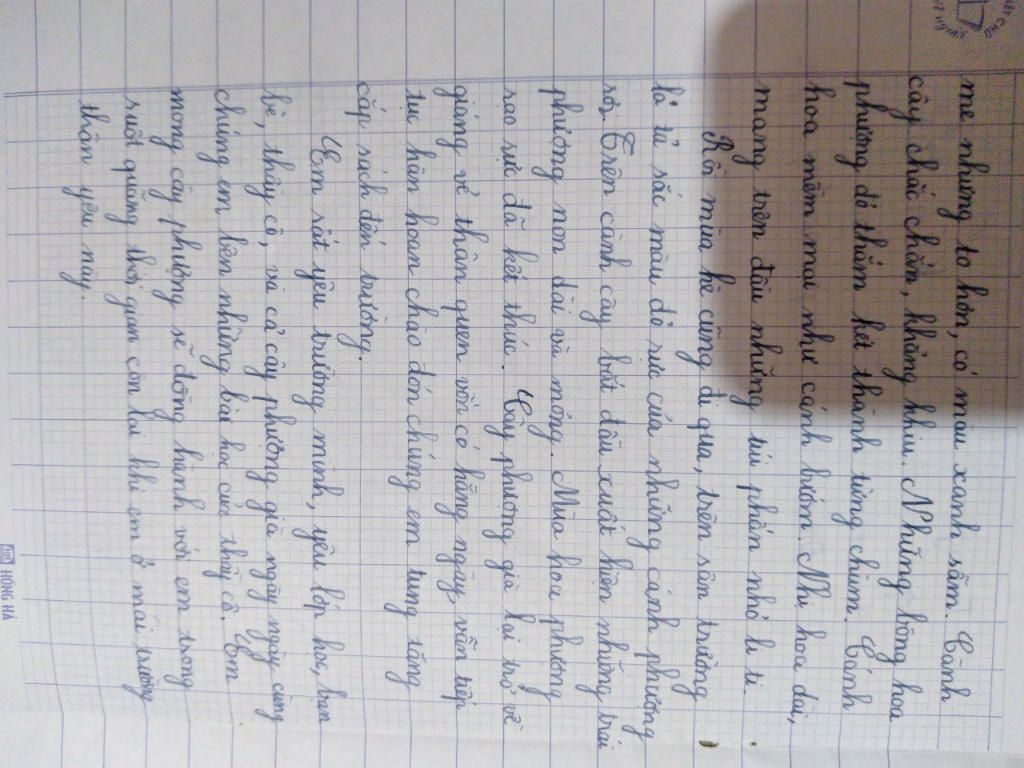 me nhưng to hơn, có màu xanh sẫm. Cành
cây chắc chắn, khẳng khiu. Những bông hoa
phượng đỏ thắm kết thành từng chùm. Cánh
hoa mềm mại như cánh bướm. Nhị hoa dài,
mang trên đầu những túi phấn nhỏ li ti.
Rồi mùa hè cũng đi qua, trên sân trường
là tả sắc màu đỏ rực của những cánh phượng
rơi. Trên cành cây bắt đầu xuất hiện những trái
phượng non dài và mỏng. Mùa hoa phượng
rực đã kết thúc. Cây phượng già lại trở về
giáng vẻ thân quen vốn có hằng ngày, vẫn tiếp
tục hân hoan chào đón chúng em tung tăng
cắp sách đến trường.
Em rất yêu trường mình, yêu lớp học, bạn
bè, thầy cô, và cả cây phượng già ngày ngày cùng
chúng em bên những bài học của thầy cô. Em
mong cây phượng sẽ đồng hành với em trong
suốt quãng thời gian còn lại khi em ở mái trường
thân yêu này.
HỒNG HÀ